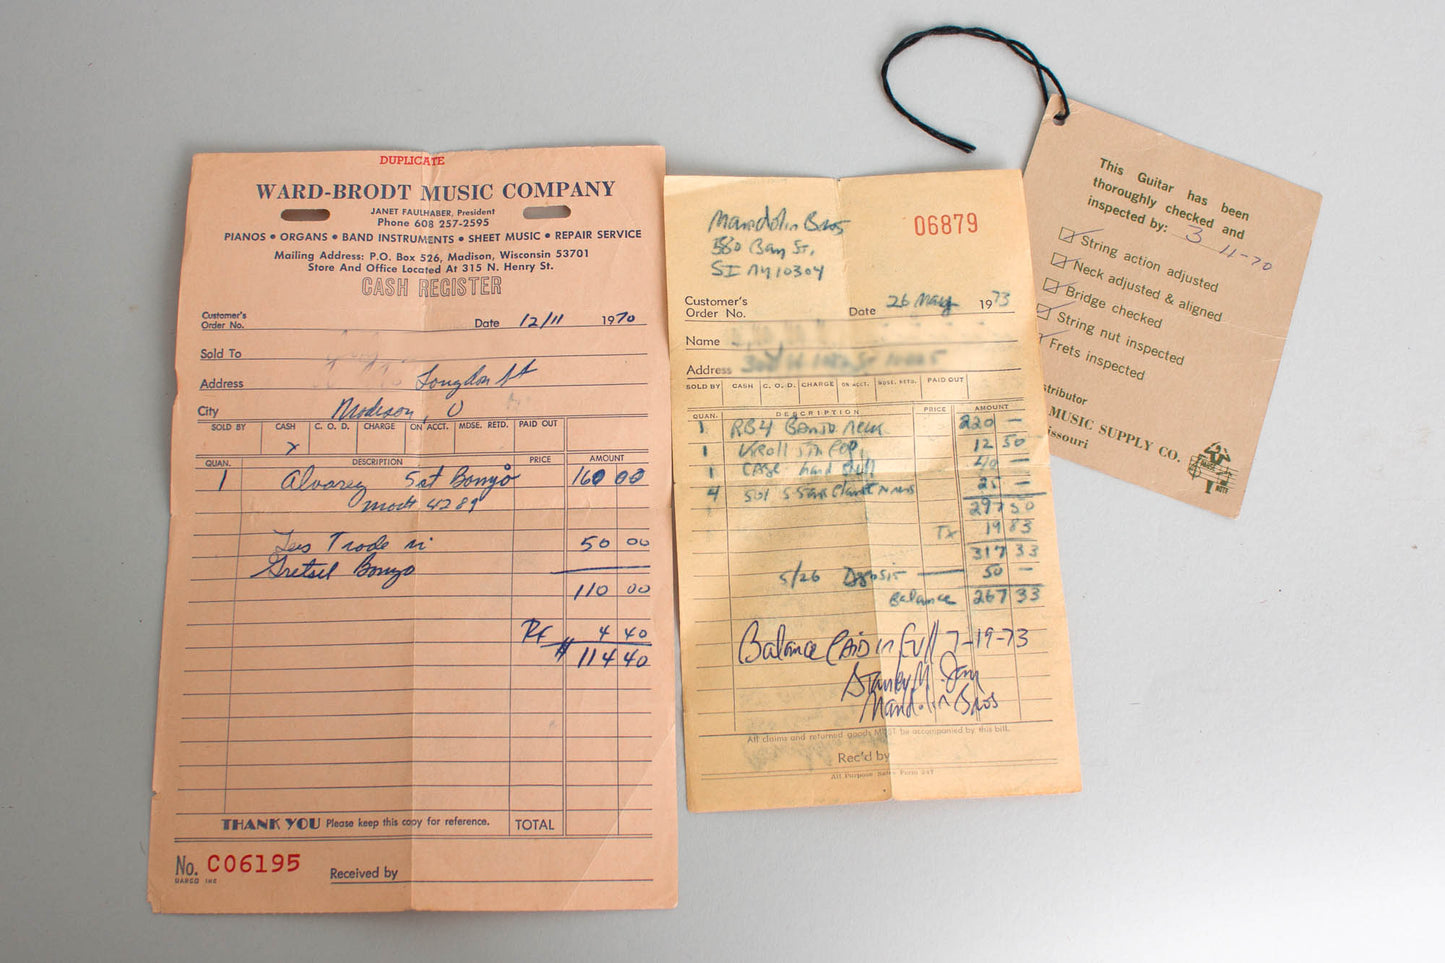 DUPLICATE
WARD-BRODT MUSIC COMPANY
JANET FAULHABER, President
Phone 608 257-2595
PIANOS • ORGANS • BAND INSTRUMENTS • SHEET MUSIC • REPAIR SERVICE
Mailing Address: P.O. Box 526, Madison, Wisconsin 53701
Store And Office Located At 315 N. Henry St.
CASH REGISTER
Customer's
Order No.
Date 12/11 1970
Sold To
Address Longdon St
City Madison,
SOLD BY CASH C. O. D. CHARGE ON ACCT. MDSE. RETD. PAID OUT
x
QUAN. DESCRIPTION PRICE AMOUNT
1 Alvarez 5 st Banjo 160 00
mod# 4289
Less Trade in 50 00
Gretsch Banjo
110 00
4 40
$ 114 40
THANK YOU Please keep this copy for reference. TOTAL
No. C06195
Received by
Mandolin Bros
580 Bay St,
SI NY 10304
06879
Customer's
Order No.
Date 26 May 1973
Name
Address
SOLD BY CASH C. O. D. CHARGE ON ACCT. MDSE. RETD. PAID OUT
QUAN. DESCRIPTION PRICE AMOUNT
1 RB4 Banjo neck 220 —
1 12 50
1 Case hard shell 40 —
4 25 —
297 50
Tx 19 83
317 33
5/26 Deposit — 50 —
Balance 267 33
Balance Paid in Full 7-19-73
Stanley M. Jay
Mandolin Bros
All claims and returned goods MUST be accompanied by this bill.
Rec'd by
All Purpose Sales Form 247
This Guitar has been
thoroughly checked and
inspected by: 3-11-70
String action adjusted
Neck adjusted & aligned
Bridge checked
String nut inspected
Frets inspected
stributor
MUSIC SUPPLY CO.
issouri
NOTE